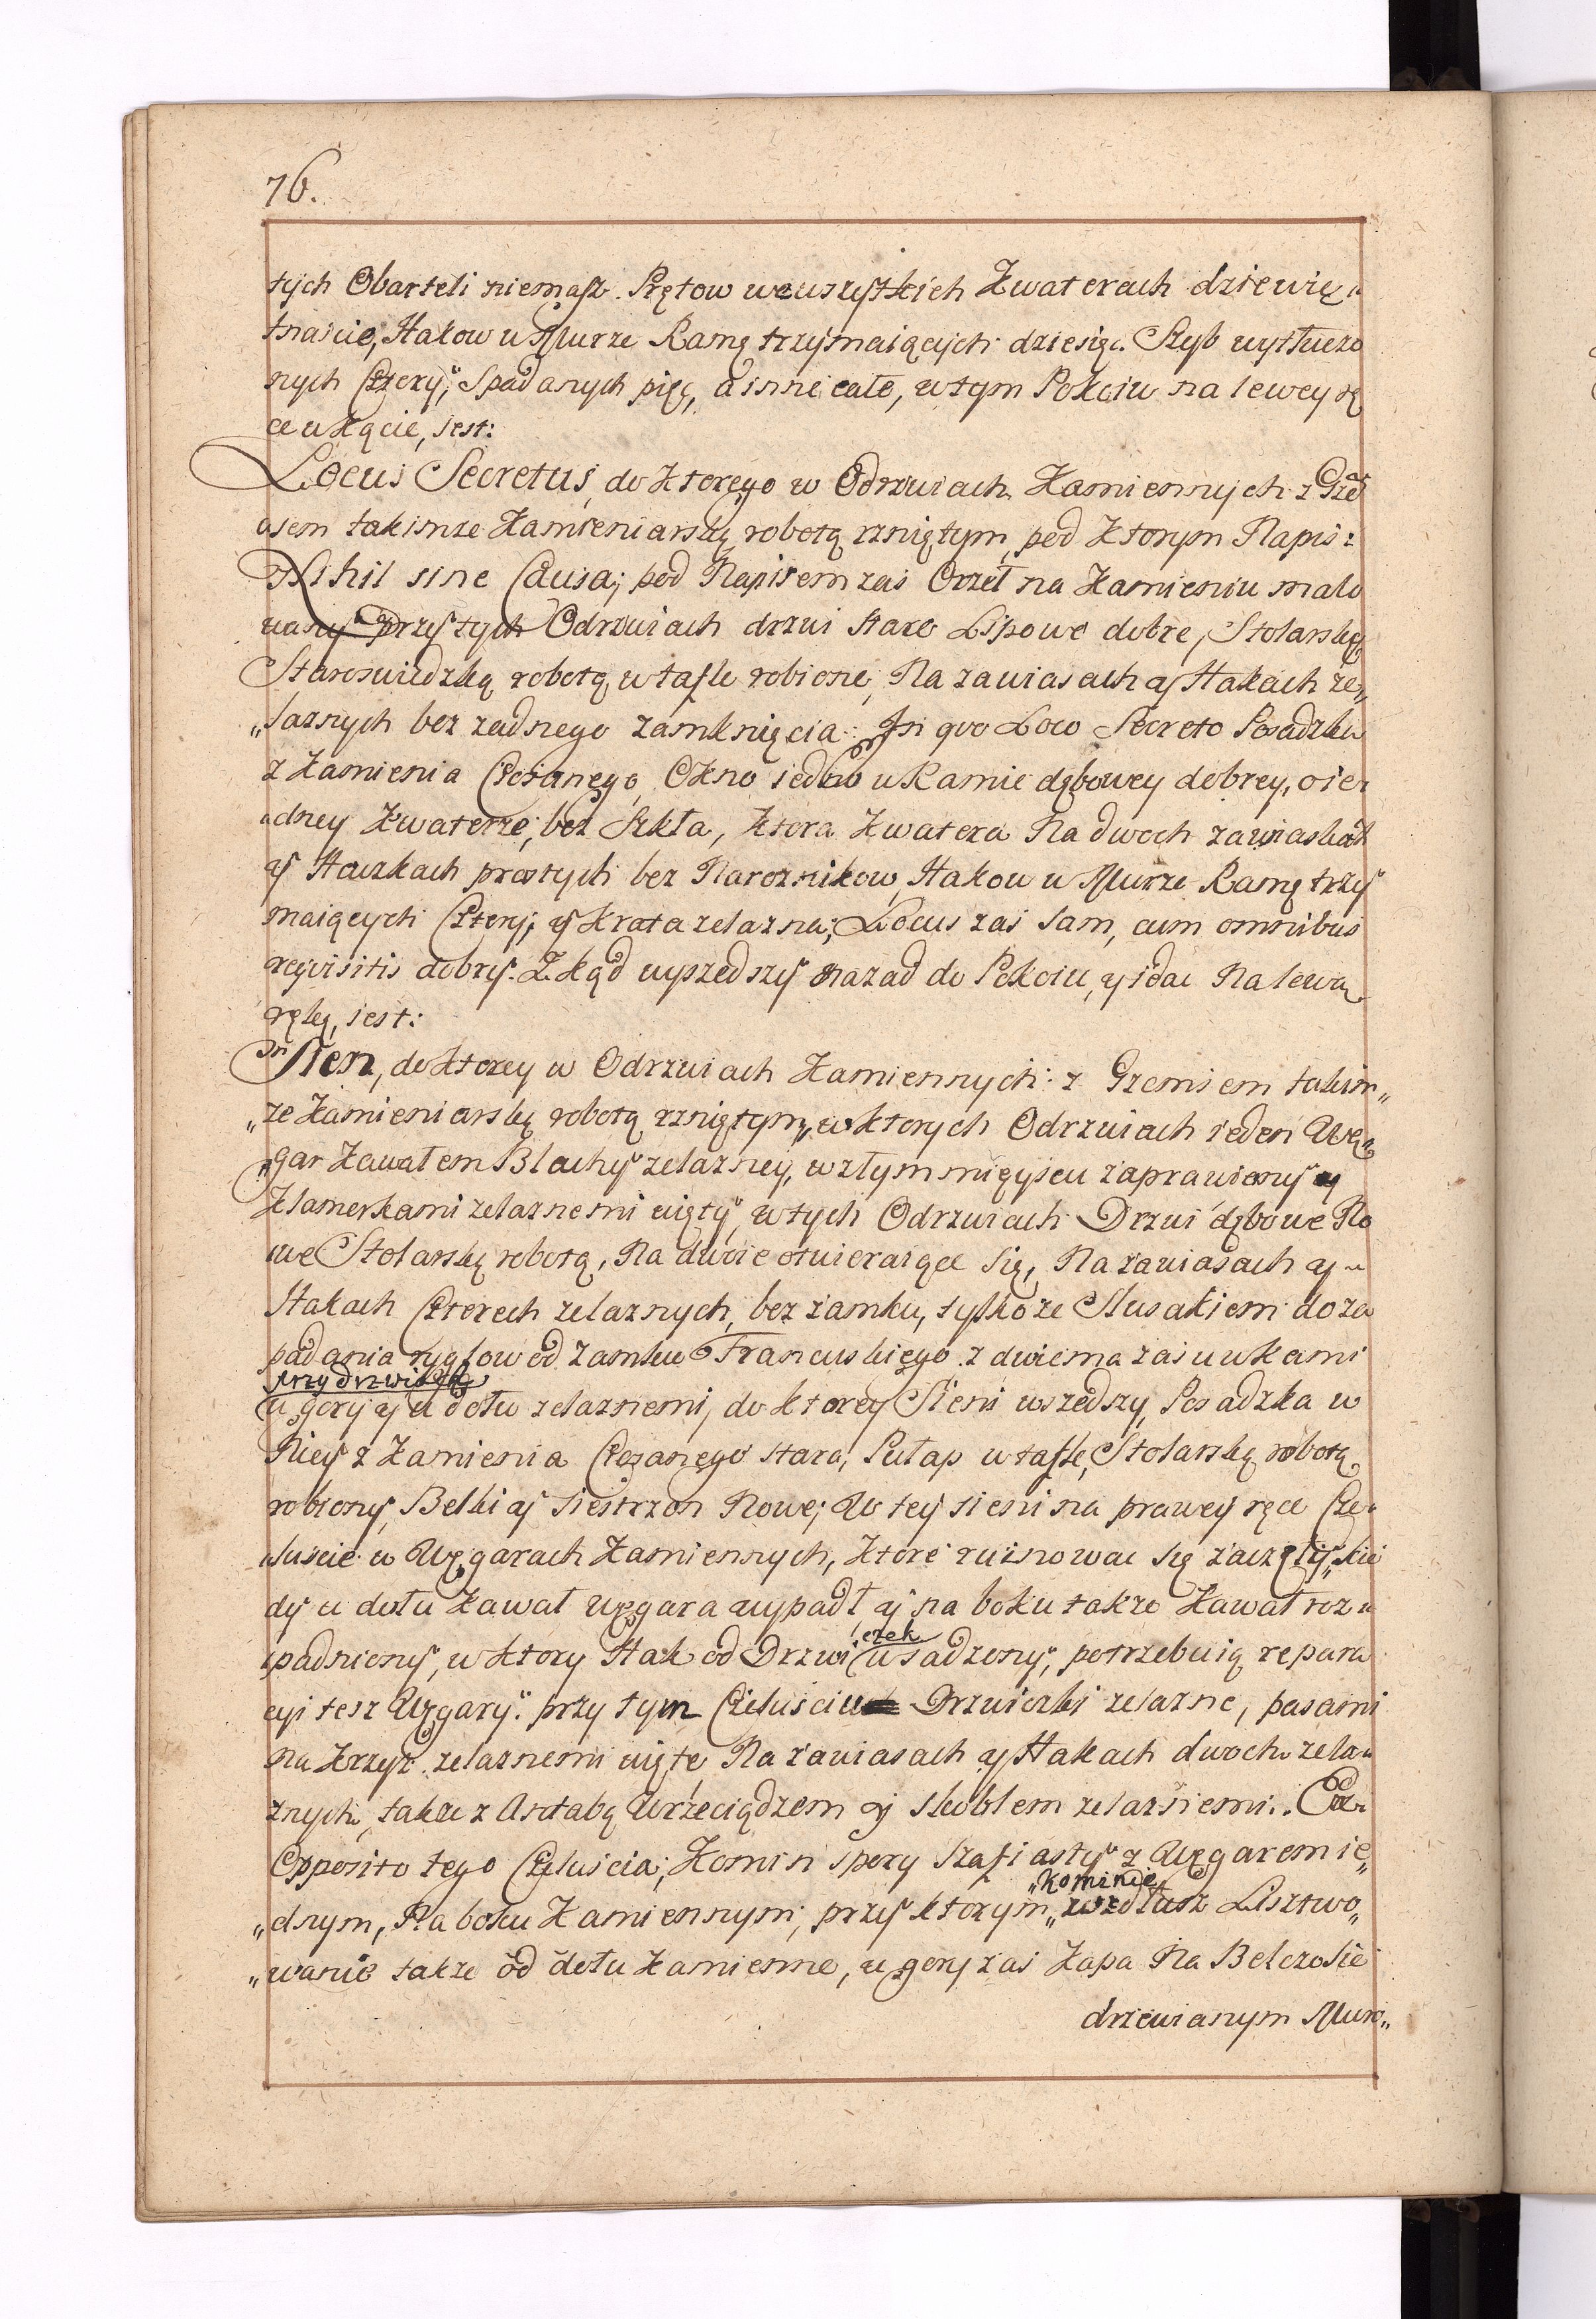 76.
tych Obarteli niemasz. Prętow wewszystkich Kwaterach dziewię„
tnaście, Hakow w Murze Ramę trzymaiących dziesięc. Szyb wytłuczo
nych Cztery, Spadanych pięc, a inne całe, w tym Pokoiu na lewey rę
ce w Kącie, jest:
Locus Secretus, do Ktorego w Odrzwiach Kamiennych z Gze
msem takimze Kamieniarską robotą rzniętym, pod Ktorym Napis:
Nihil sine Causa; pod Napisem zas Orzeł na Kamieniu malo
wany przy tych Odrzwiach drzwi stare Lipowe dobre, Stolarską
Staroswiedzką robotą w tafle robione, Na zawiasach y Hakach że„
„laznych bez zadnego zamknięcia: In quo Loco Secreto Posadzka
z Kamienia Ciosanego, Okno iedno w Ramie dębowey dobrey, o ie„
„dney Kwaterze, bez Szkła, Ktora Kwatera Na dwoch zawiaskach
y Haczkach prostych bez Naroznikow, Hakow w Murze Ramę trzy
maiących Cztery, y Krata zelazna; Locus zas sam, cum omnibus
requisitis dobry. Z Kąd wyszedszy nazad do Pokoiu, y idac Na lewą
rękę, iest:
Sien, do Ktorey w Odrzwiach Kamiennych: z Gzemsem takim„
„ze Kamieniarską robotą rzniętym, w ktorych Odrzwiach ieden Wę„
„gar Kawałem Blachy zelazney, w złym mieyscu zaprawiony y
Klamerkami zelaznemi uięty, w tych Odrzwiach Drzwi dębowe No
we Stolarską robotą, Na dwoie otwieraiące się, Na zawiasach y„
Hakach Czterech zelaznych, bez zamku, tylko ze Slusakiem do za
padania ryglow od Zamku Francuskiego z dwiema zasuwkami
przy drzwiach
u gory y u dołu zelaznemi, do ktorey Sieni wszedszy, Posadzka w
Niey z Kamienia Ciosanego stara, Pułap w tafle, Stolarską robotą
robiony, Belki y siestrzon Nowe; W tey sieni na prawey ręce Cze„
„luscie w Węgarach Kamiennych, Ktore ruinowac się zaczęły, kie
dy u dołu Kawał węgara wypadł, y na boku takze Kawał roz„
„padniony, w ktory Hak od Drzwiczek usadzony, potrzebuią repara
cyi tesz Węgary. przy tym Czeluściu Drzwiczki zelazne, pasami
na Krzyz zelaznemi uięte Na zawiasach y Hakach dwoch zela„
znych, takze z Antabą Wrzeciądzem y skoblem zelaznemi. Ex
Opposito tego Czeluścia, Komin spory Szafiasty z Węgarem ie„
„dnym, Na boku Kamiennym, przy ktorym „Kominie wzdłusz Lisztwo„
„wanie takze od dołu kamienne, u gory zas Kapa Na Belczosie
drzewianym Muro„